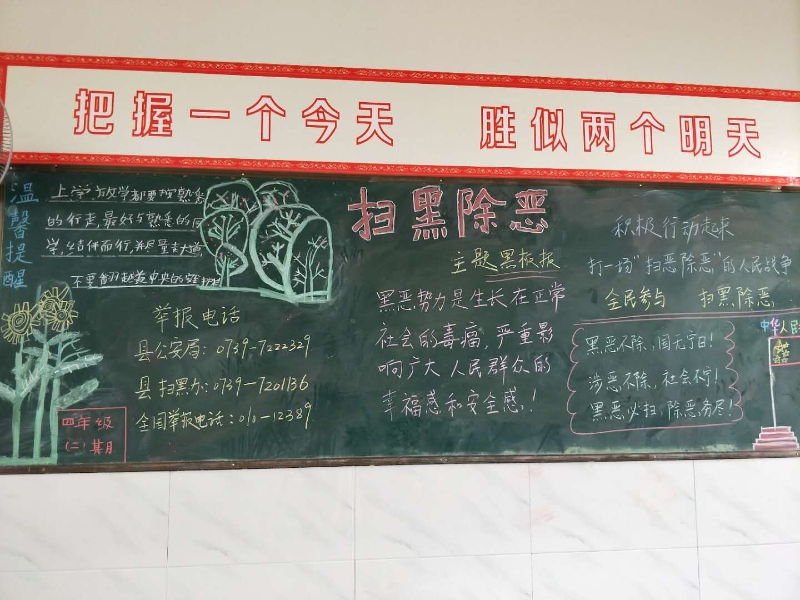 把握一个今天 胜似两个明天
温馨提醒
上学、放学都要按熟悉
的行走,最好与熟悉的同
学,结伴而行,并尽量走大道,
不要翻越前中央的
举报电话
县公安局:0739-7222329
县扫黑办:0739-7201136
全国举报电话:010-12389
四年级
(二)某月
扫黑除恶
主题黑板报
黑恶势力是生长在正常
社会的毒瘤,严重影
响广大人民群众的
幸福感和安全感!
积极行动起来
打一场"扫恶除恶"的人民战争
全民参与 扫黑除恶
黑恶不除,国无宁日!
涉恶不除,社会不宁!
黑恶必扫,除恶务尽!
中华人民